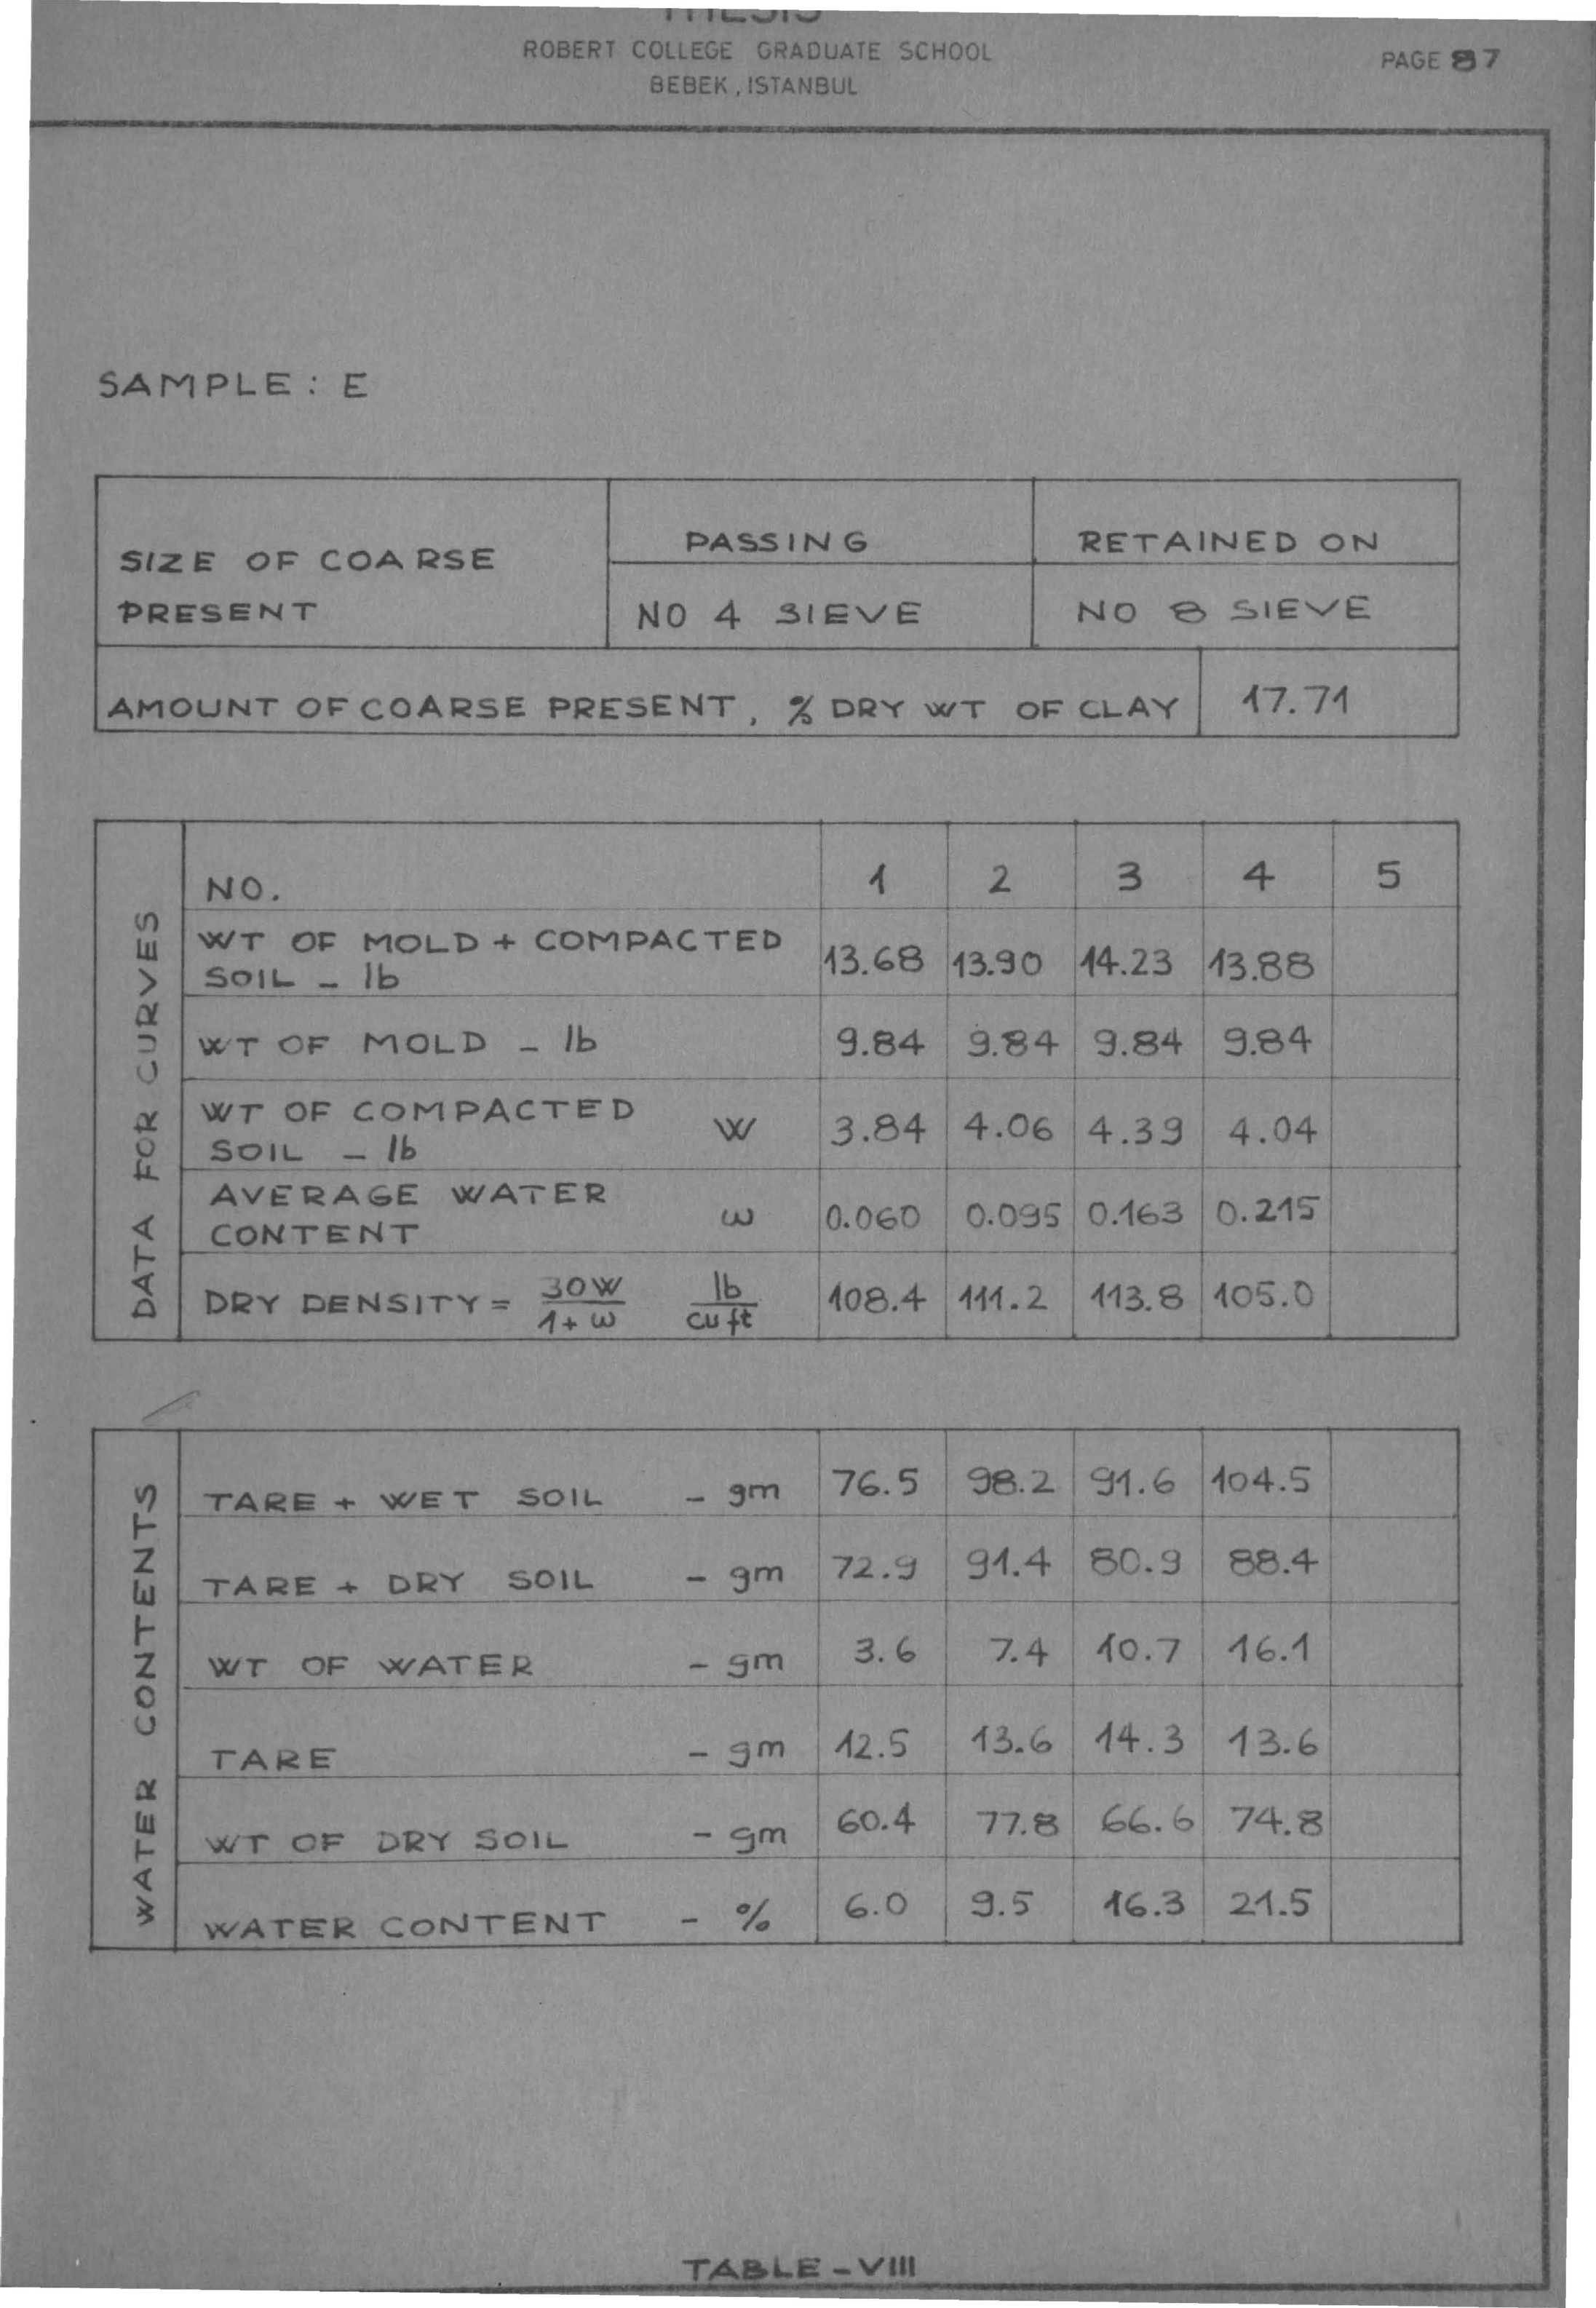 THESIS
ROBERT COLLEGE GRADUATE SCHOOL
BEBEK, ISTANBUL
PAGE 87
SAMPLE: E
SIZE OF COARSE PRESENT
PASSING
RETAINED ON
NO 4 SIEVE
NO 8 SIEVE
AMOUNT OF COARSE PRESENT, % DRY WT OF CLAY 17.71
DATA FOR CURVES
NO. 1 2 3 4 5
WT OF MOLD + COMPACTED
SOIL - lb 13.68 13.90 14.23 13.88
WT OF MOLD - lb 9.84 9.84 9.84 9.84
WT OF COMPACTED
SOIL - lb W 3.84 4.06 4.39 4.04
AVERAGE WATER
CONTENT ω 0.060 0.095 0.163 0.215
DRY DENSITY = 30W / 1+ω lb / cu ft 108.4 111.2 113.8 105.0
WATER CONTENTS
TARE + WET SOIL - gm 76.5 98.2 91.6 104.5
TARE + DRY SOIL - gm 72.9 91.4 80.9 88.4
WT OF WATER - gm 3.6 7.4 10.7 16.1
TARE - gm 12.5 13.6 14.3 13.6
WT OF DRY SOIL - gm 60.4 77.8 66.6 74.8
WATER CONTENT - % 6.0 9.5 16.3 21.5
TABLE - VIII